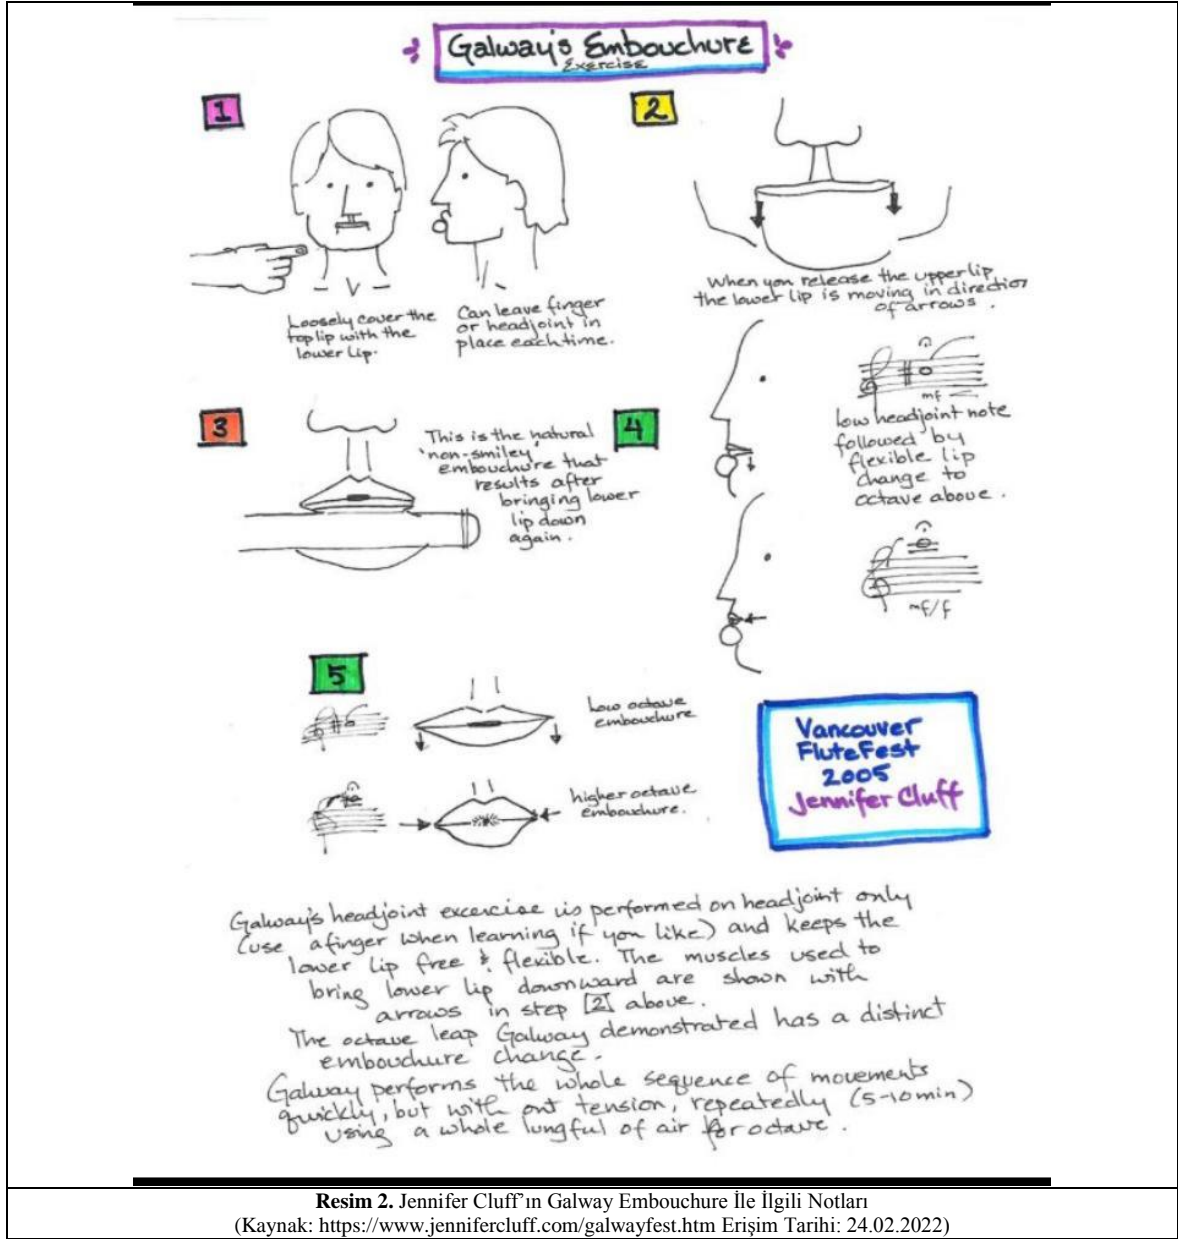 Galway's Embouchure
Exercise
1
Loosely cover the
top lip with the
lower lip.
Can leave finger
or headjoint in
place each time.
2
When you release the upper lip
the lower lip is moving in direction
of arrows.
3
This is the natural
'non-smiley'
embouchure that
results after
bringing lower
lip down
again.
4
mf
low headjoint note
followed by
flexible lip
change to
octave above.
mf/f
5
Low octave
embouchure
higher octave
embouchure.
Vancouver
FluteFest
2005
Jennifer Cluff
Galway's headjoint excercise is performed on headjoint only
(use a finger when learning if you like) and keeps the
lower lip free & flexible. The muscles used to
bring lower lip downward are shown with
arrows in step 2 above.
The octave leap Galway demonstrated has a distinct
embouchure change.
Galway performs the whole sequence of movements
quickly, but with out tension, repeatedly (5-10 min)
using a whole lungful of air for octave.
Resim 2. Jennifer Cluff'ın Galway Embouchure İle İlgili Notları
(Kaynak: https://www.jennifercluff.com/galwayfest.htm Erişim Tarihi: 24.02.2022)